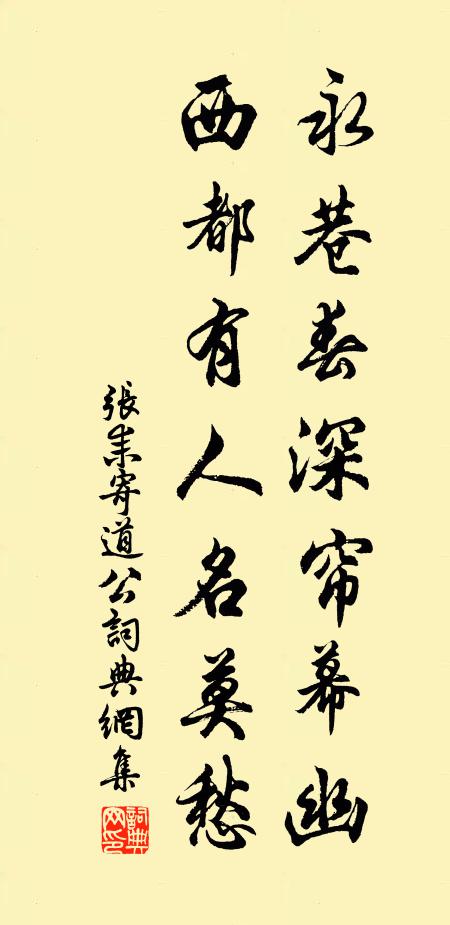 永巷春深帘幕幽
西都有人名莫愁
張耒寄道公詞典網集
詞典
网印